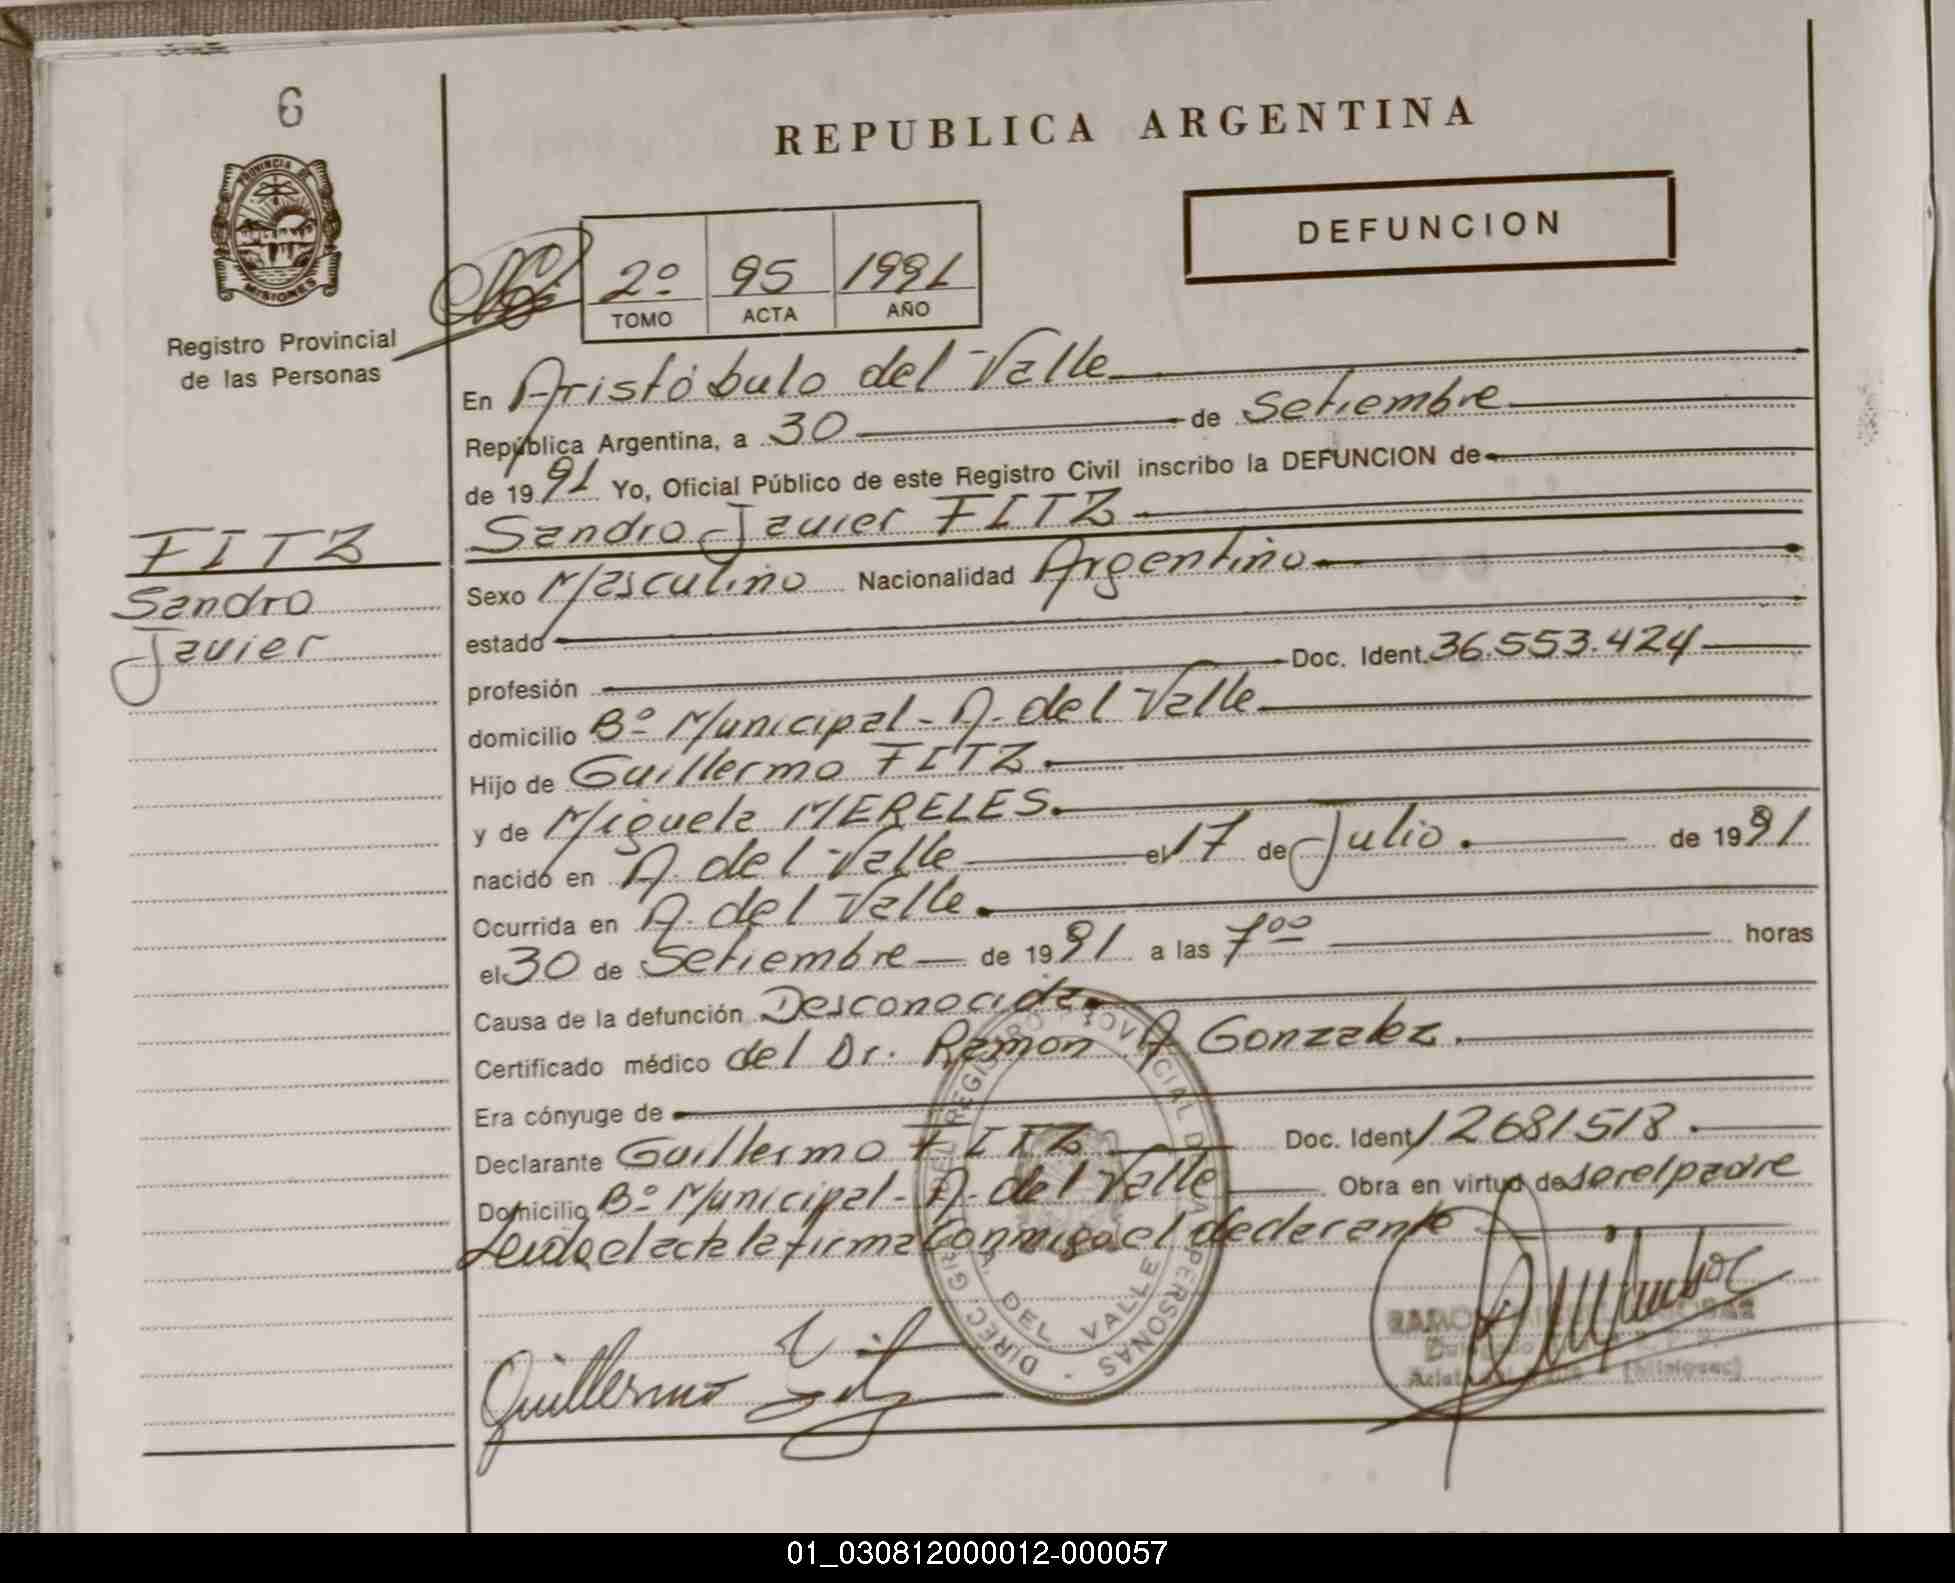 6
PROVINCIA DE
MISIONES
Registro Provincial
de las Personas
REPUBLICA ARGENTINA
DEFUNCION
2º 95 1991
TOMO ACTA AÑO
En Aristóbulo del Valle
República Argentina, a 30 de Setiembre
de 1991 Yo, Oficial Público de este Registro Civil inscribo la DEFUNCION de
Sandro Javier FITZ
FITZ
Sandro
Javier
Sexo Masculino Nacionalidad Argentino
estado
profesión Doc. Ident. 36.553.424
domicilio Bº Municipal - A. del Valle
Hijo de Guillermo FITZ.
y de Miguela MERELES.
nacido en A. del Valle el 17 de Julio. de 1991
Ocurrida en A. del Valle.
el 30 de Setiembre de 1991 a las 7⁰⁰ horas
Causa de la defunción Desconocida.
Certificado médico del Dr. Ramon A Gonzalez.
Era cónyuge de
Declarante Guillermo FITZ Doc. Ident. 12681518.
Domicilio Bº Municipal - A. del Valle Obra en virtud de ser el padre
Leida el acta la firma conmigo el declarante
DIREC. GRAL. DEL REGISTRO PROVINCIAL DE LAS PERSONAS
A. DEL VALLE
Guillermo
01_030812000012-000057